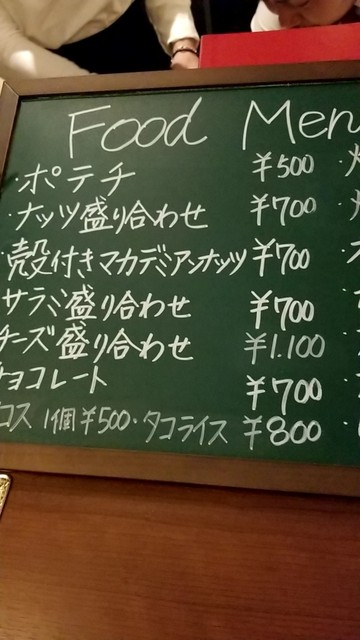 Food Men
・ポテチ ¥500
・ナッツ盛り合わせ ¥700
殻付きマカデミアンナッツ ¥700
サラミ盛り合わせ ¥700
チーズ盛り合わせ ¥1.100
チョコレート ¥700
コス 1個¥500・タコライス ¥800